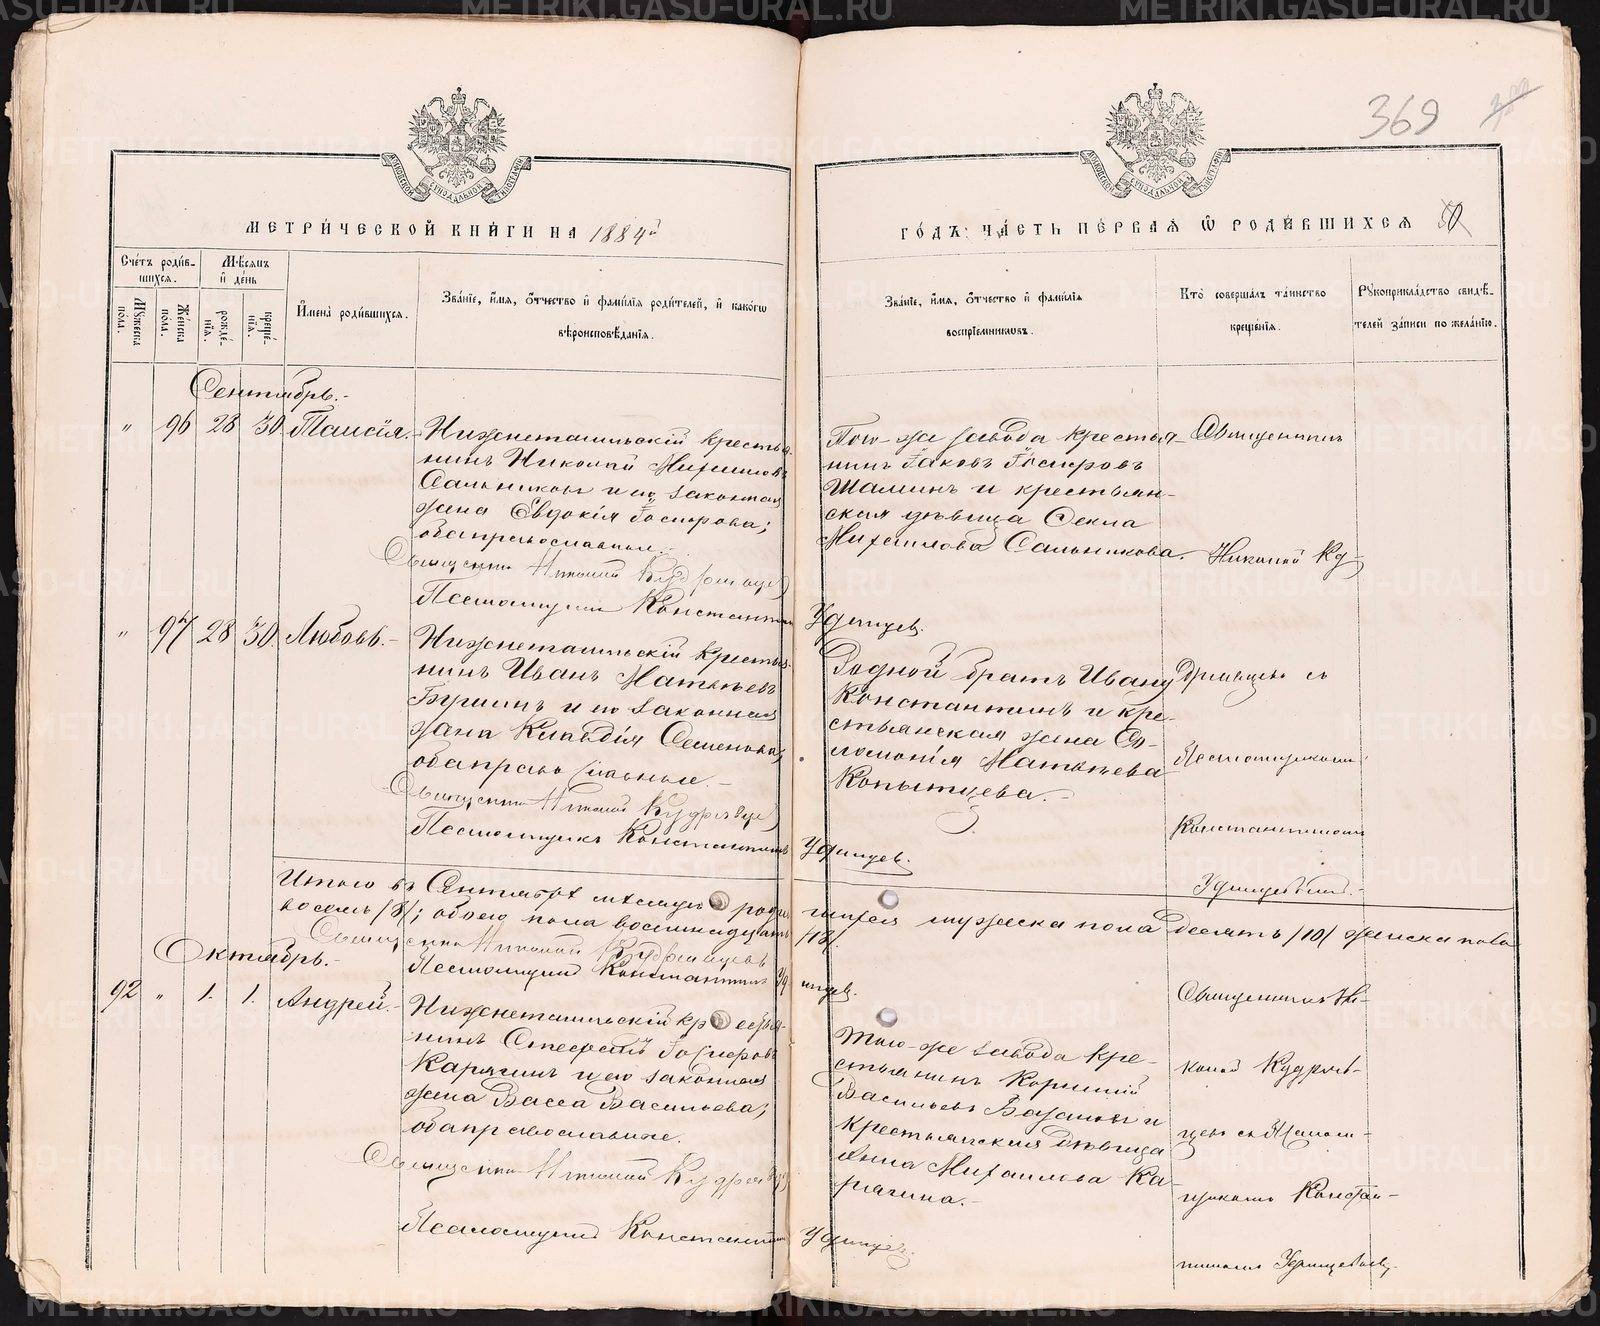 369
МЕТРИ́ЧЕСКОЙ КНИ́ГИ НА 1884й
ГО́ДЪ ЧА́СТЬ ПЕ́РВАЯ Ѿ РОДИ́ВШИХСЯ 50
Сче́тъ роди́в-
шихся.
М́ѣсяцъ
и҆ де́нь
Мꙋ́жеска
по́ла.
Же́нска
по́ла.
рожде́-
нїѧ.
креще́-
нїѧ.
И҆мена̀ роди́вшихся.
Зва́нїе, и҆́мя, ѻ҆́тчество и҆ фами́лїя роди́телей, и҆ како́гѡ
вѣроисповѣ́данїя.
Зва́нїе, и҆́мя, ѻ҆́тчество и҆ фами́лїя
воспрїе́мниковъ.
Кто̀ соверша́лъ та́инство
креще́нїя.
Рꙋкоприкла́дство свидѣ́-
телей за́писи по жела́нїю.
Сентябрь.-
" 96 28 30. Таисія.-
Нижнетагильскій крестья-
нинъ Николай Михайловъ
Сальниковъ и его законная
жена Евдокія Іосифова;
оба православные.-
Священникъ Николай Кудрявцев
Псаломщикъ Константинъ Удинцев.
Того-же завода крестья-
нинъ Іаковъ Іосифовъ
Шаминъ и крестьян-
ская дѣвица Фекла
Михайлова Сальникова.
Священникъ
Николай Ку-
" 97 28 30. Любовь.-
Нижнетагильскій крестья-
нинъ Иванъ Матвѣевъ
и его законная
жена Клавдія Семенова,
оба православные.-
Священникъ Николай Кудрявцев
Псаломщикъ Константинъ Удинцев.
Родной братъ Ивану
Константинъ и кре-
стьянская жена Со-
ломонія Матвѣева
Копытцева.-
дрявцевъ съ
Псаломщикомъ
Константиномъ
Удинцевымъ.-
Итого въ Сентябрѣ мѣсяцѣ родившихся мужеска пола десять /10/ женска пола
восемь /8/; обоего пола восемнадцать /18/.
Священникъ Николай Кудрявцевъ
Псаломщикъ Константинъ Удинцев.
Октябрь.-
92 " 1. 1. Андрей.-
Нижнетагильскій крестья-
нинъ Стефанъ Іосифовъ
Карягинъ и его законная
жена Васса Васильева;
оба православные.
Священникъ Николай Кудрявцев
Псаломщикъ Константинъ Удинцев.
Того-же завода кре-
стьянинъ Корнилій
Васильевъ и
крестьянская дѣвица
Анна Михайлова Ка-
рягина.-
Священникъ Ни-
колай Кудряв-
цевъ съ Псалом-
щикомъ Констан-
тиномъ Удинцевымъ.